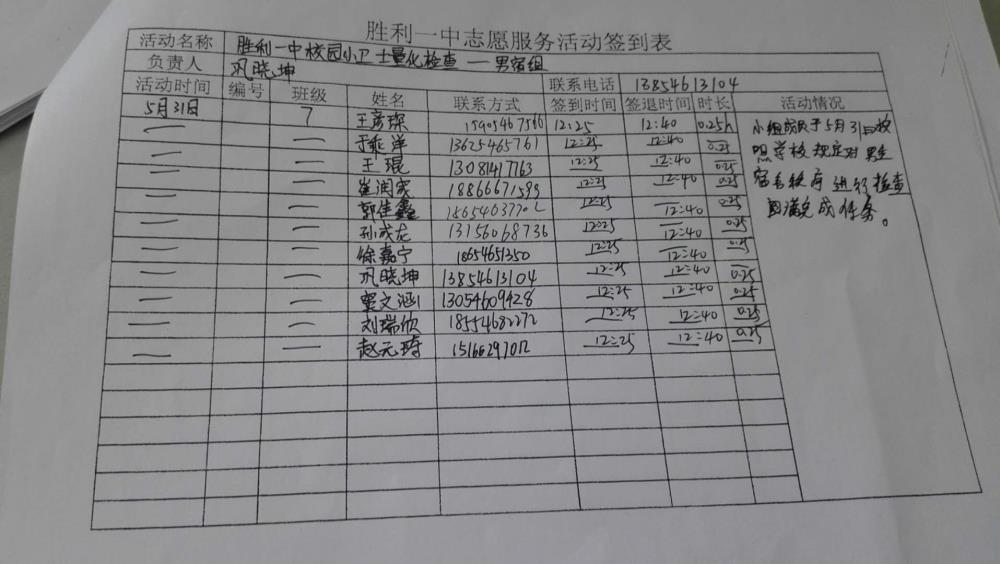 胜利一中志愿服务活动签到表
活动名称 胜利一中校园小卫士量化检查 — 男宿组
负责人 巩晓坤 联系电话 13854613104
活动时间 编号 班级 姓名 联系方式 签到时间 签退时间 时长 活动情况
5月31日 7 王彦琛 15905467566 12:25 12:40 0.25h
— — 于乘洋 13625465761 12:25 12:40 0.25
— — 王琨 13081417763 12:25 12:40 0.25
— — 崔润宾 18866671599 12:25 12:40 0.25
— — 郭佳鑫 18654637702 12:25 12:40 0.25
— — 孙成龙 13156068736 12:25 12:40 0.25
— — 徐嘉宁 18654651350 12:25 12:40 0.25
— — 巩晓坤 13854613104 12:25 12:40 0.25
— — 窦文涵 13054609428 12:25 12:40 0.25
— — 刘瑞欣 18554682272 12:25 12:40 0.25
— — 赵元琦 15166297012 12:25 12:40 0.25
小组成员于5月31日按
照学校规定对男生
宿舍秩序进行检查
圆满完成任务。